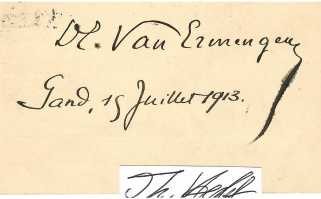 Dr. Van Ermengem
Gand, 15 Juillet 1913.
Th.